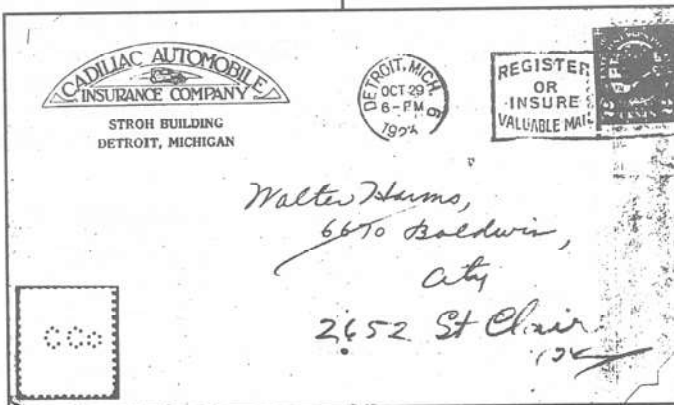 CADILLAC AUTOMOBILE
INSURANCE COMPANY
STROH BUILDING
DETROIT, MICHIGAN
DETROIT, MICH. 6
OCT 29
6-PM
REGISTER
OR
INSURE
VALUABLE MAIL
Walter Harms,
6670 Baldwin,
City
2652 St Clair
CCo